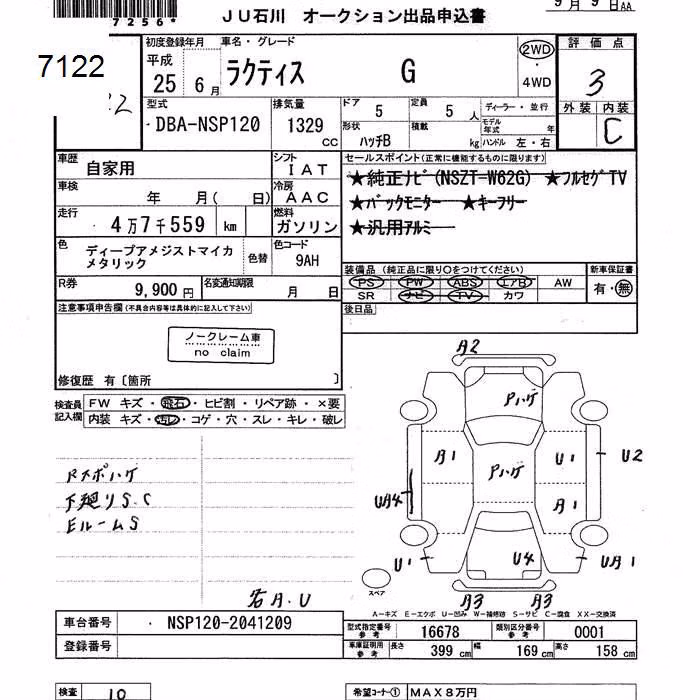 7256*
JU石川 オークション出品申込書
9月9日AA
7122
初度登録年月
平成
25 6月
車名・グレード
ラクティス G
2WD
・
4WD
評価点
3
外装 内装
C
型式
・DBA-NSP120
排気量
1329 CC
ドア 5
定員 5人
ディーラー・並行
形状 ハッチB
積載 kg
モデル年式 年
ハンドル 左・右
車歴
自家用
シフト
IAT
車検
年 月 (日)
冷房
AAC
走行
4万7千559 km
燃料
ガソリン
セールスポイント(正常に機能するものに限ります)
★純正ナビ(NSZT-W62G) ★フルセグTV
★バックモニター ★キーフリー
★汎用アルミ
色
ディープアメジストマイカ
メタリック
色替
色コード
9AH
R券
9,900円
名変通知期限
月 日
装備品 (純正品に限り〇をつけてください)
PS PW ABS エアB AW
SR ナビ TV カワ
新車保証書
有・無
後日品
注意事項申告欄(不具合内容等は具体的に記入して下さい)
ノークレーム車
no claim
修復歴 有〔箇所 〕
検査員
記入欄
FW キズ・飛石・ヒビ割・リペア跡・×要
内装 キズ・汚レ・コゲ・穴・スレ・キレ・破レ
Rスポハゲ
下廻りS.C
EルームS
右A.U
A2
Pハゲ
A1
Pハゲ
U2
UA4
A1
U1
U4
UA1
A3
A3
スペア
A-キズ E-エクボ U-凹み W-補修跡 S-サビ C-腐食 XX-交換済
車台番号
・NSP120-2041209
登録番号
型式指定番号 参考 16678
類別区分番号 参考 0001
車庫証明用 参考
長さ 399cm
幅 169cm
高さ 158cm
検査 10
希望コーナー① MAX8万円